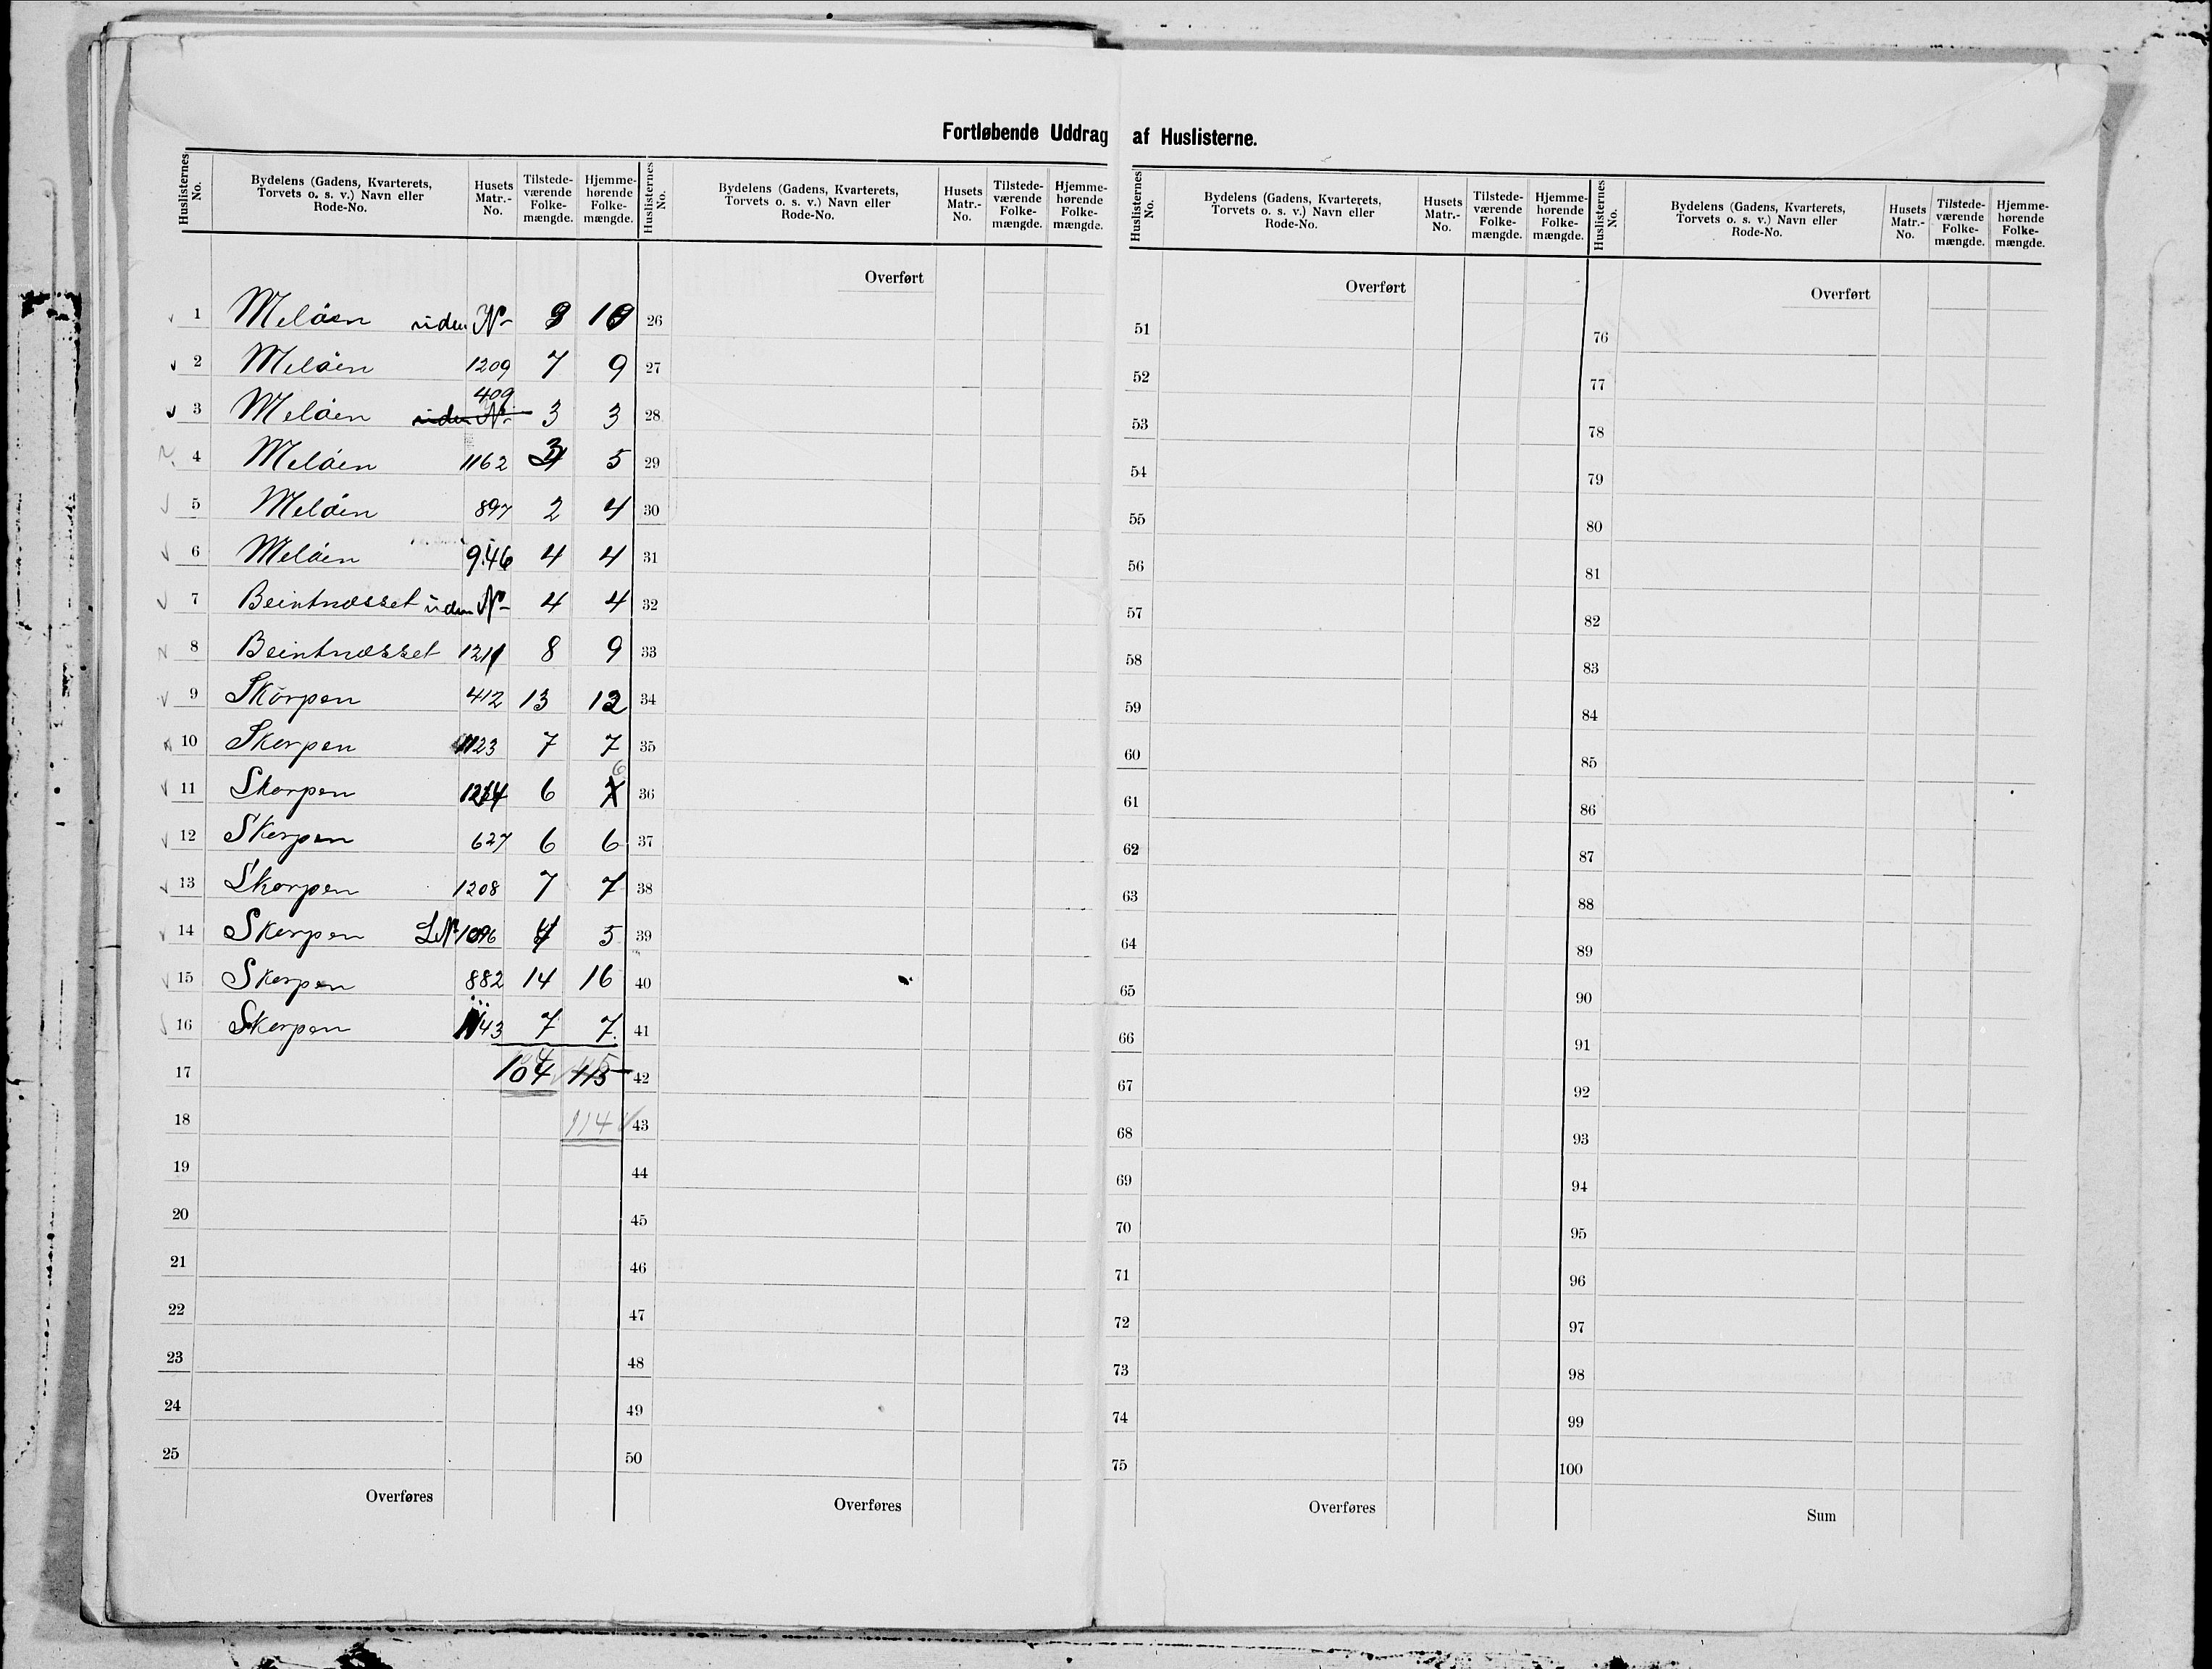 Fortløbende Uddrag af Huslisterne.
Huslisternes No. Bydelens (Gadens, Kvarterets, Torvets o. s. v.) Navn eller Rode-No. Husets Matr.-No. Tilstede-værende Folke-mængde. Hjemme-hørende Folke-mængde.
Huslisternes No. Bydelens (Gadens, Kvarterets, Torvets o. s. v.) Navn eller Rode-No. Husets Matr.-No. Tilstede-værende Folke-mængde. Hjemme-hørende Folke-mængde.
Huslisternes No. Bydelens (Gadens, Kvarterets, Torvets o. s. v.) Navn eller Rode-No. Husets Matr.-No. Tilstede-værende Folke-mængde. Hjemme-hørende Folke-mængde.
Huslisternes No. Bydelens (Gadens, Kvarterets, Torvets o. s. v.) Navn eller Rode-No. Husets Matr.-No. Tilstede-værende Folke-mængde. Hjemme-hørende Folke-mængde.
1 Meløen uden No
2 Meløen 1209 7 9
409
3 Meløen uden No 3 3
4 Meløen 1162 3 5
5 Meløen 897 2 4
6 Meløen 946 4 4
7 Beintnæsset uden No 4 4
8 Beintnæsset 1211 8 9
9 Skorpen 412 13 12
10 Skorpen 1123 7 7
6
11 Skorpen 6 7
12 Skorpen 627 6 6
13 Skorpen 1208 7 7
14 Skorpen LNo 1096 4 5
15 Skorpen 882 14 16
16 Skorpen 1143 7 7
17 104 115
18 114
19
20
21
22
23
24
25
Overføres
Overført
26
27
28
29
30
31
32
33
34
35
36
37
38
39
40
41
42
43
44
45
46
47
48
49
50
Overføres
Overført
51
52
53
54
55
56
57
58
59
60
61
62
63
64
65
66
67
68
69
70
71
72
73
74
75
Overføres
Overført
76
77
78
79
80
81
82
83
84
85
86
87
88
89
90
91
92
93
94
95
96
97
98
99
100
Sum